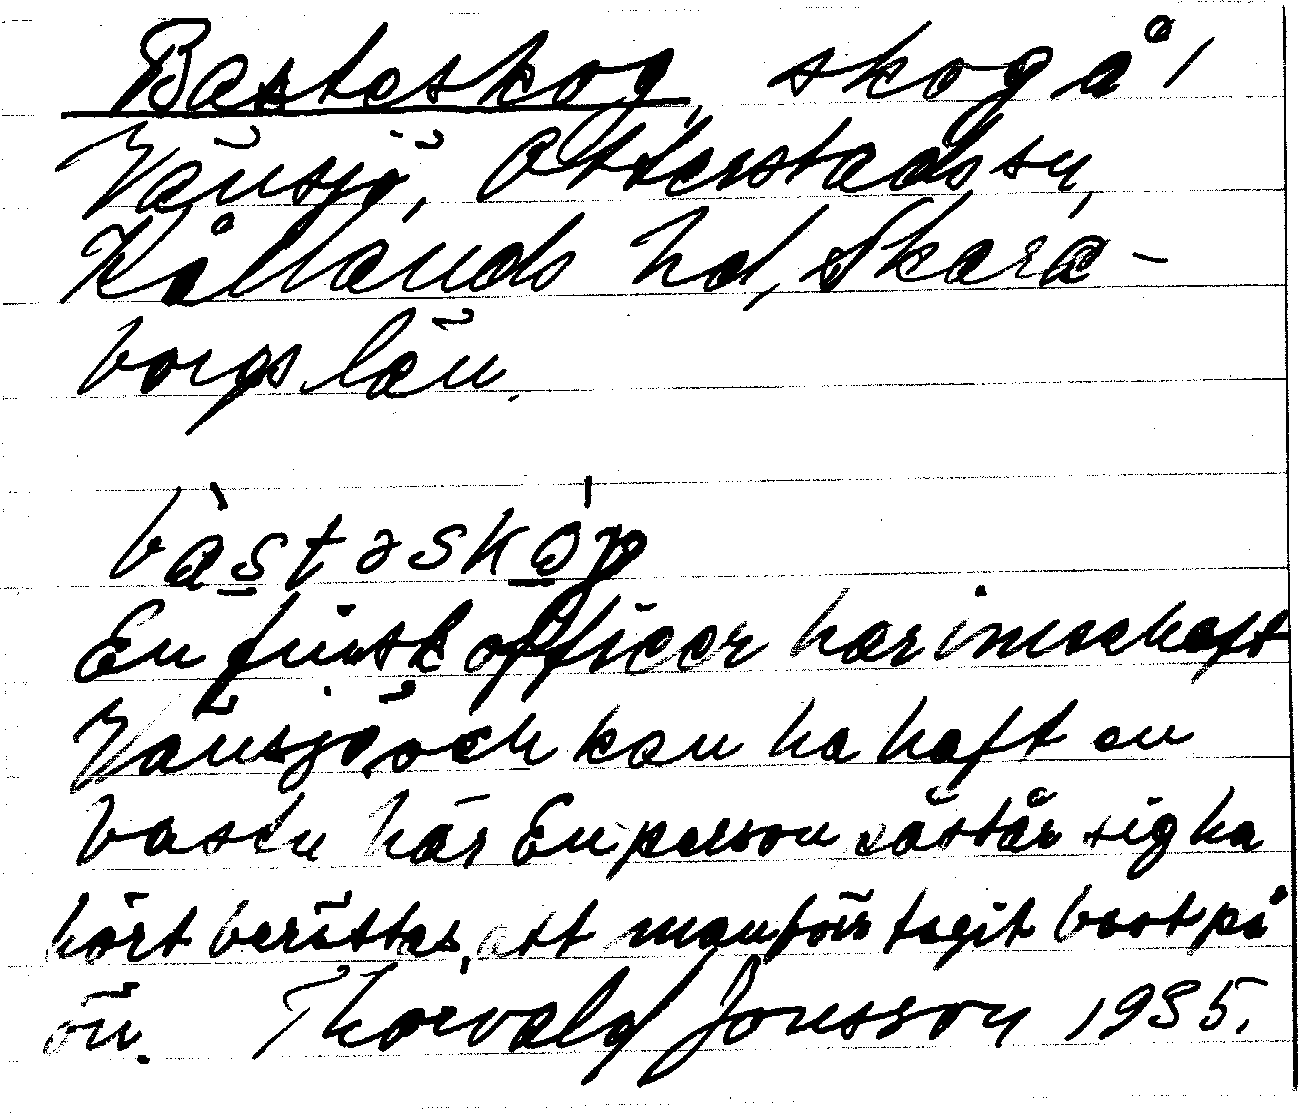 Basteskog, skog å
Vänsjö, Otterstads sn,
Kållands hd, Skara-
borgs län.
bàstəskóg
En finsk officer har innehaft
Vänsjö, och kan ha haft en
bastu här En person påstår sig ha
hört berättas, att man förr tagit bast på
ön. Thorvald Jonsson 1935.